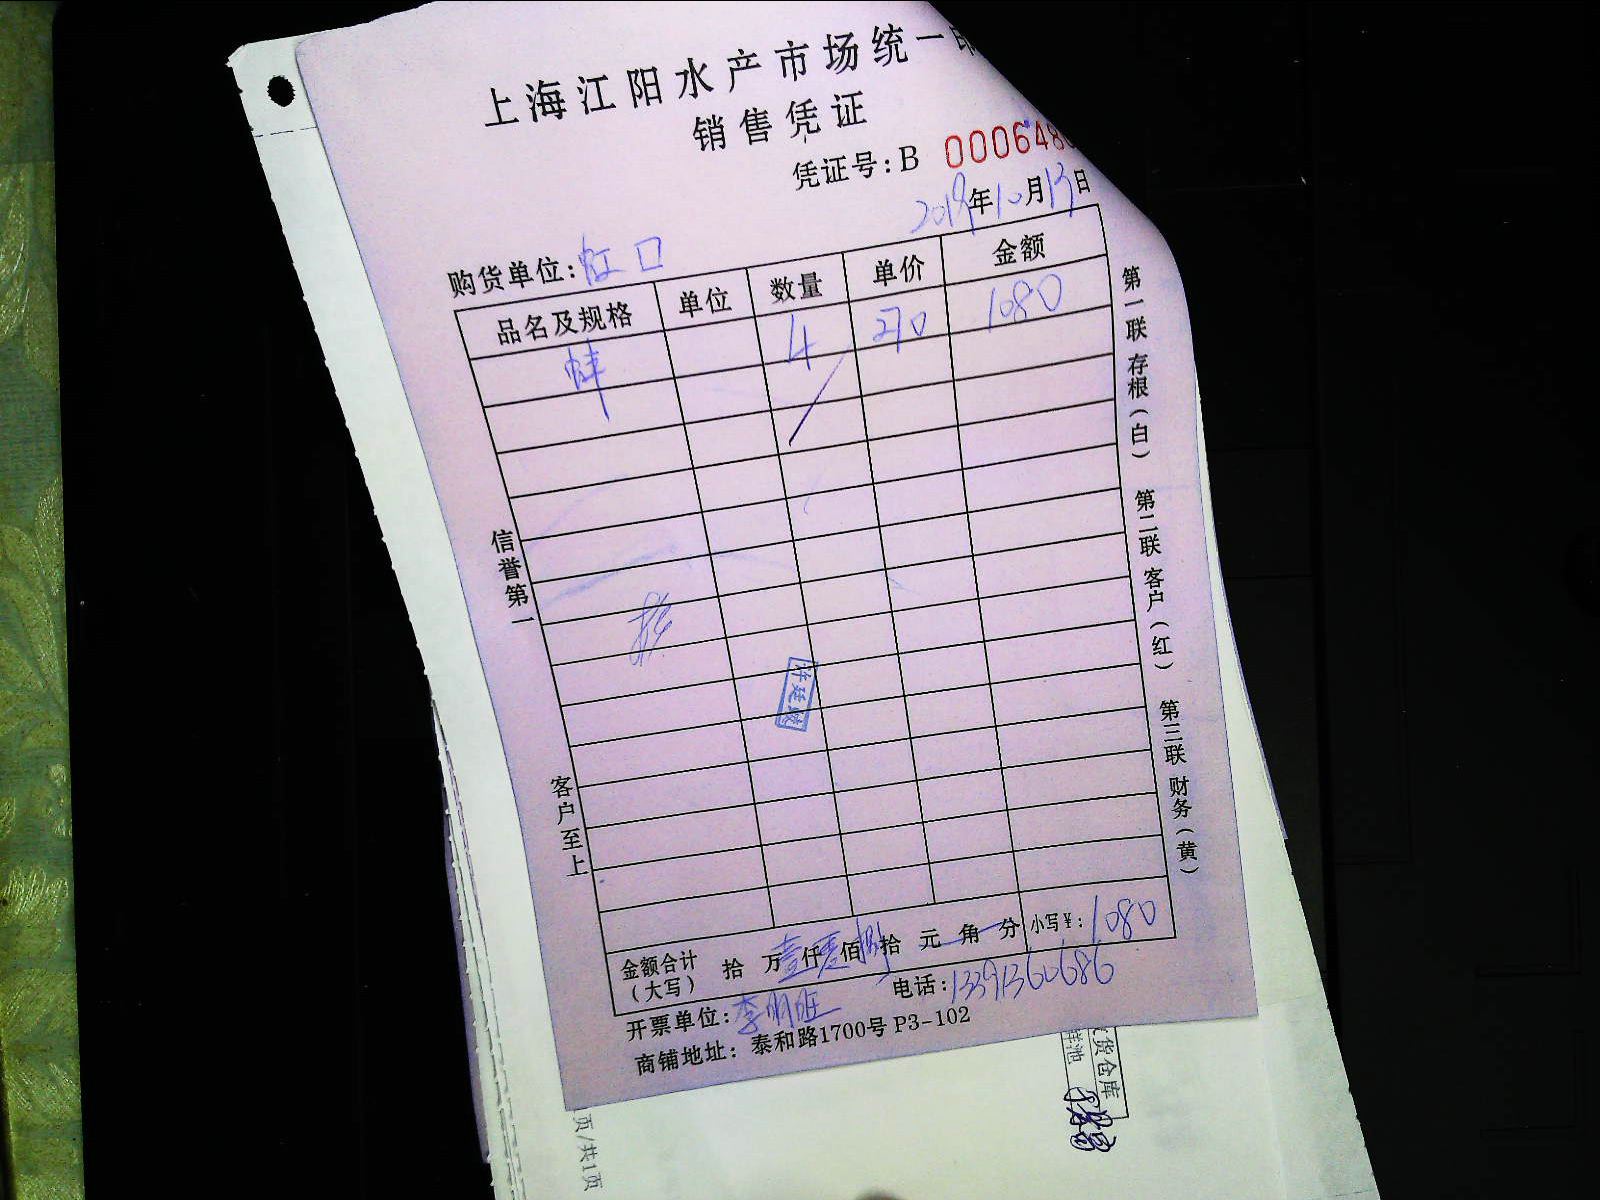 上海江阳水产市场统一
销售凭证
凭证号：B 000648
2019年10月13日
购货单位：虹口
品名及规格 单位 数量 单价 金额
蚌 4 270 1080
信誉第一
客户至上
第一联 存根（白） 第二联 客户（红） 第三联 财务（黄）
金额合计（大写） 拾 万 壹 仟 佰 捌 拾 元 角 分 小写¥：1080
开票单位：李明旺 电话：13391360686
商铺地址：泰和路1700号 P3-102
货仓库
鲜池
页/共1页